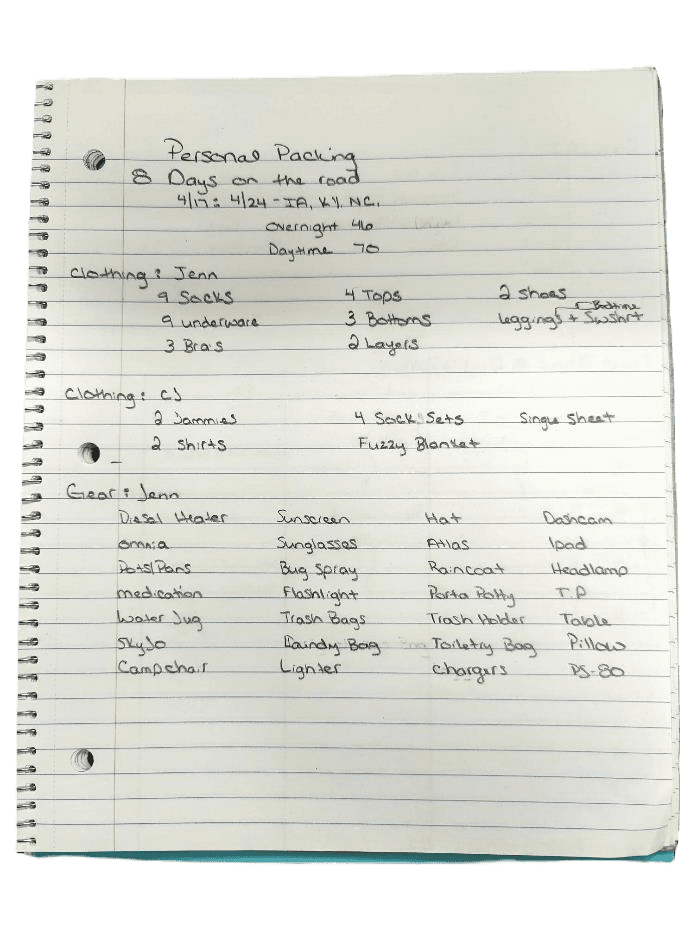 Personal Packing
8 Days on the road
4/17 : 4/24 - IA, KY, NC,
Overnight 46
Daytime 70
Clothing : Jenn
9 Socks 4 Tops 2 Shoes
Bedtime
9 underware 3 Bottoms leggings + Swshrt
3 Bras 2 Layers
Clothing : CJ
2 Jammies 4 Sock Sets Single Sheet
2 Shirts Fuzzy Blanket
Gear : Jenn
Diesel Heater Sunscreen Hat Dashcam
omnia Sunglasses Atlas Ipad
Pots/Pans Bug Spray Raincoat Headlamp
medication Flashlight Porta Potty T.P
Water Jug Trash Bags Trash Holder Table
SkyJo Laundy Bag Toiletry Bag Pillow
Camp chair Lighter Chargers DS-80